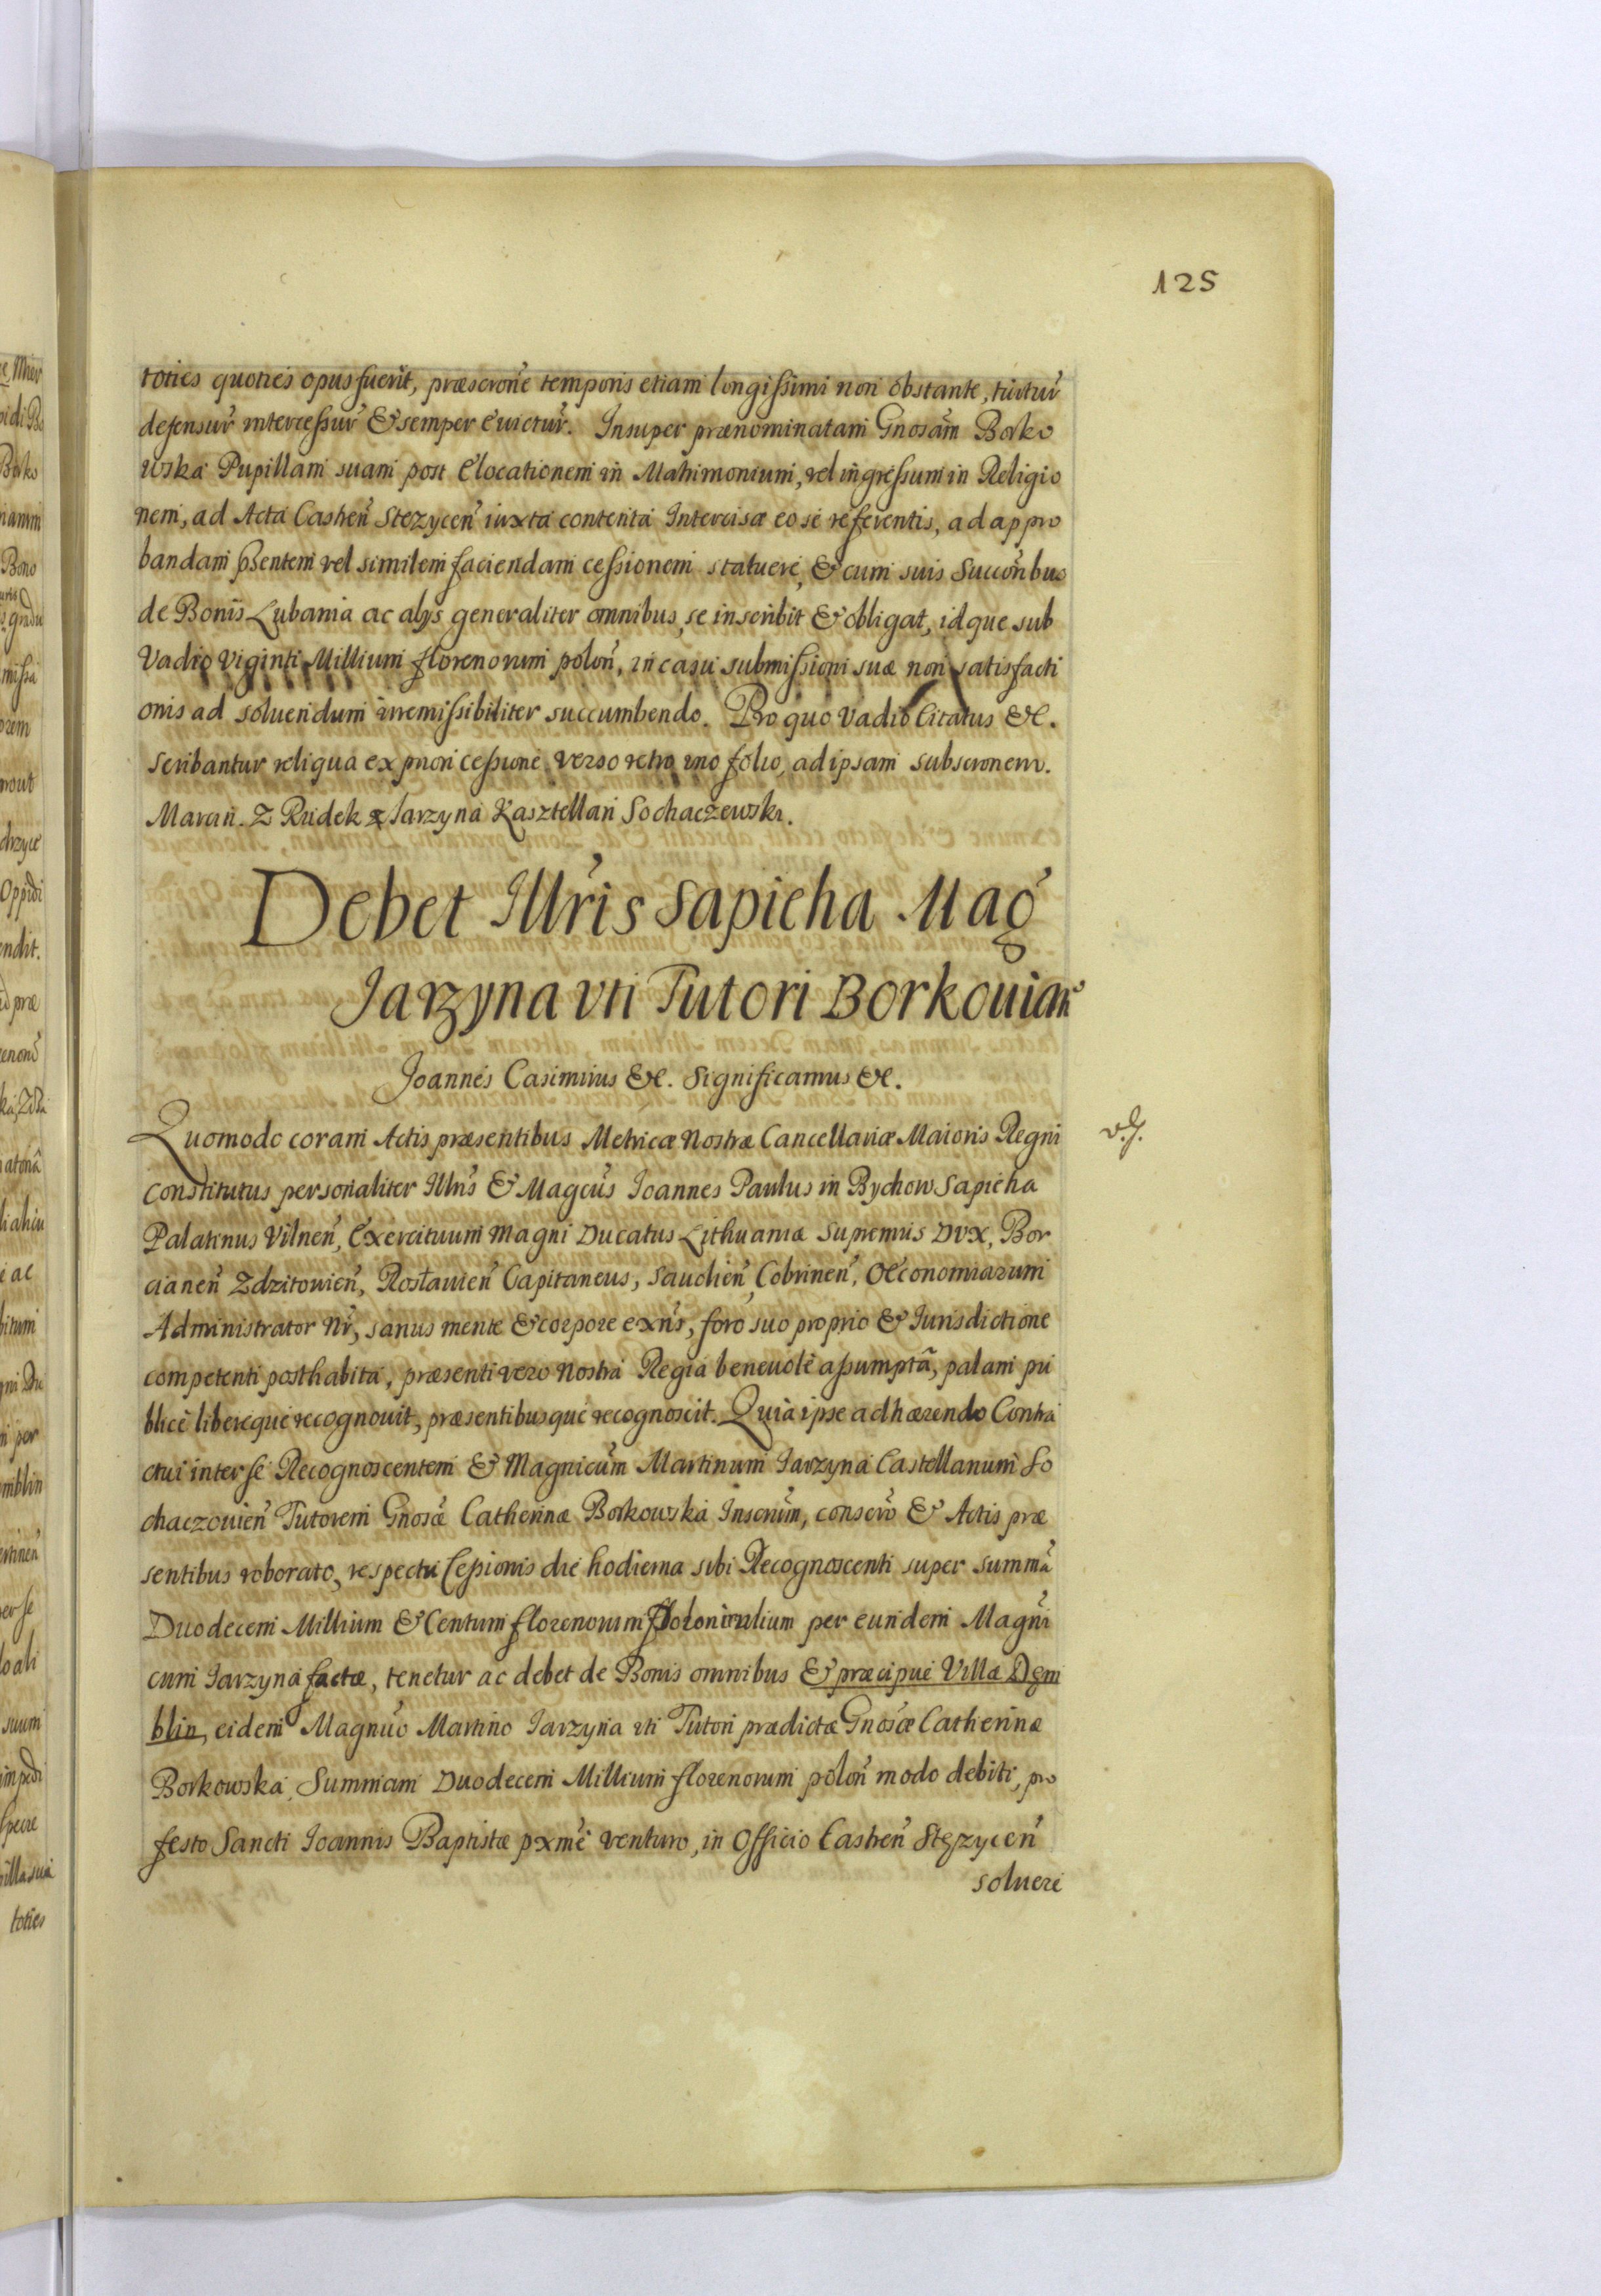 125
toties quoties opus fuerit, præscrone temporis etiam longissimi non obstante, tuitur
defensur intercessur & semper euictur. Insuper prænominatam Gnosam Borko
wska Pupillam suam post Elocationem in Matrimonium, vel ingressum in Religio
nem, ad Acta Castren Stezycen iuxta contenta Intercisæ eo se referentis, ad appro
bandam psentem vel similem faciendam cessionem statuere, & cum suis Succonbus
de Bonis Lubania ac alys generaliter omnibus, se inscribit & obligat, idque sub
Vadio Viginti Millium florenorum polon, in casu submissioni suæ non satisfacti
onis ad soluendum irremissibiliter succumbendo. Pro quo Vadio Citatus &c.
Scribantur reliqua ex priori cessione verso retro uno folio, ad ipsam subscronem.
Marcin Z Rudek Iarzyna Kasztellan Sochaczewski.
Debet Illris Sapieha Mag
Jarzyna vti Tutori Borkouian
Joannes Casimirus &c. Significamus &c.
Quomodo coram Actis præsentibus Metricæ Nostræ Cancellariæ Maioris Regni
constitutus personaliter Illris & Magcus Ioannes Paulus in Bychow Sapieha
Palatinus Vilnen, Exercituum Magni Ducatus Lithuaniæ Supremus Dvx, Bor
cianen Zdzitouien, Rosławien Capitaneus, Sauchen, Cobrinen, Oeconomiarum
Administrator Nr, sanus mente & corpore exns, foro suo proprio & Iurisdictione
competenti posthabita, præsenti vero Nostra Regia beneuole assumpta, palam pu
blice libereque recognouit, præsentibusque recognoscit. Quia ipse adhærendo Contra
ctui inter se Recognoscentem & Magnicum Martinum Iarzyna Castellanum So
chaczouien Tutorem Gnosæ Catherinæ Borkowska Inscrum, conscro & Actis præ
sentibus roborato, respectu Cessionis die hodierna sibi Recognoscenti super summa
Duodecem Millium & Centum florenorum per eundem Magni
cum Iarzyna factæ, tenetur ac debet de Bonis omnibus & præcipue Villæ Dem
blin, eidem Magnco Martino Iarzyna vti Tutori prædictæ Gnosæ Catherinæ
Borkowska, Summam Duodecem Millium florenorum polon modo debiti, pro
festo Sancti Ioannis Baptistæ pxme venturo, in Officio Castren Stezycen
soluere